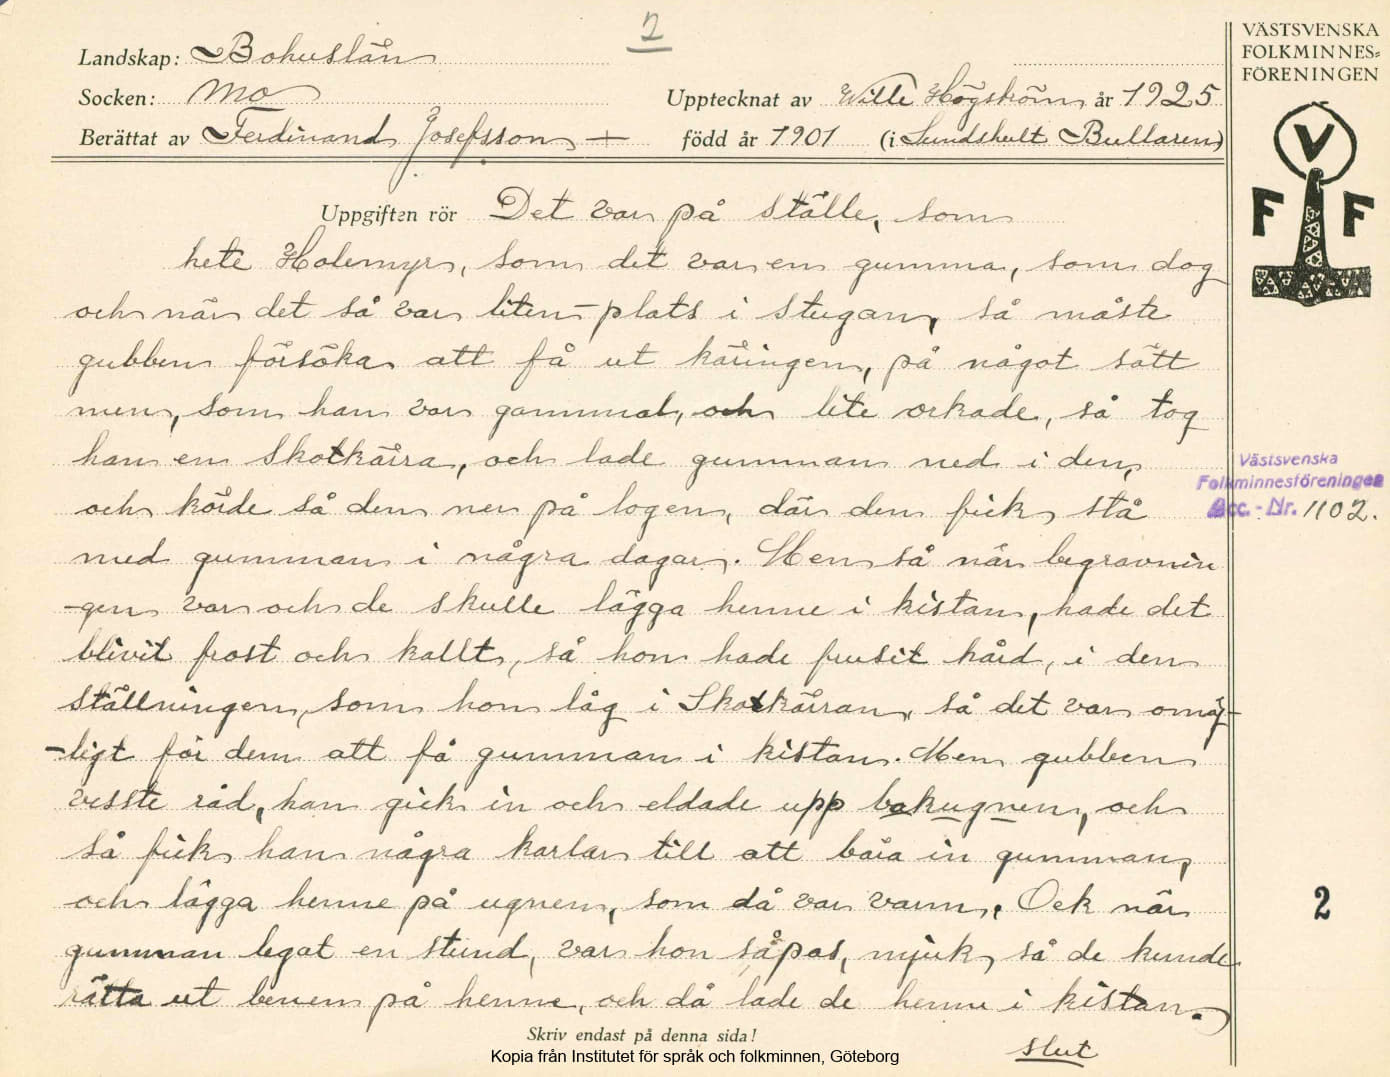 2
Landskap: Bohuslän
Socken: Mo
Upptecknat av Wille Högström år 1925
Berättat av Ferdinand Josefsson +
född år 1901 (i Sundshult Bullaren)
VÄSTSVENSKA
FOLKMINNES=
FÖRENINGEN
V
F F
Uppgiften rör Det var på ställe, som
hete Holemyr, som det var en gumma, som dog
och när det så var liten plats i stugan, så måste
gubben försöka att få ut käringen, på något sätt
men, som han var gammal, och lite orkade, så tog
han en skotkärra, och lade gumman ned i den,
och körde så den ner på logen, där den fick stå
med gumman i några dagar. Men så när begravnin
-gen var och de skulle lägga henne i kistan, hade det
blivit frost och kallt, så hon hade frusit hård, i den
ställningen, som hon låg i Skotkärran, så det var omöj-
-ligt för dem att få gumman i kistan. Men gubben
visste råd, han gick in och eldade upp bakugnen, och
så fick han några karlar till att bära in gumman,
och lägga henne på ugnen, som då var varm. Ock när
gumman legat en stund, var hon såpas, mjuk, så de kunde
rätta ut benen på henne, och då lade de henne i kistan.
slut
Västsvenska
Folkminnesföreningen
Acc. - Nr. 1102.
2
Skriv endast på denna sida!
Kopia från Institutet för språk och folkminnen, Göteborg